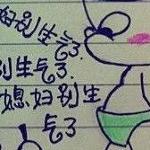 妇别生气了.
别生气了.
媳妇别生
气了